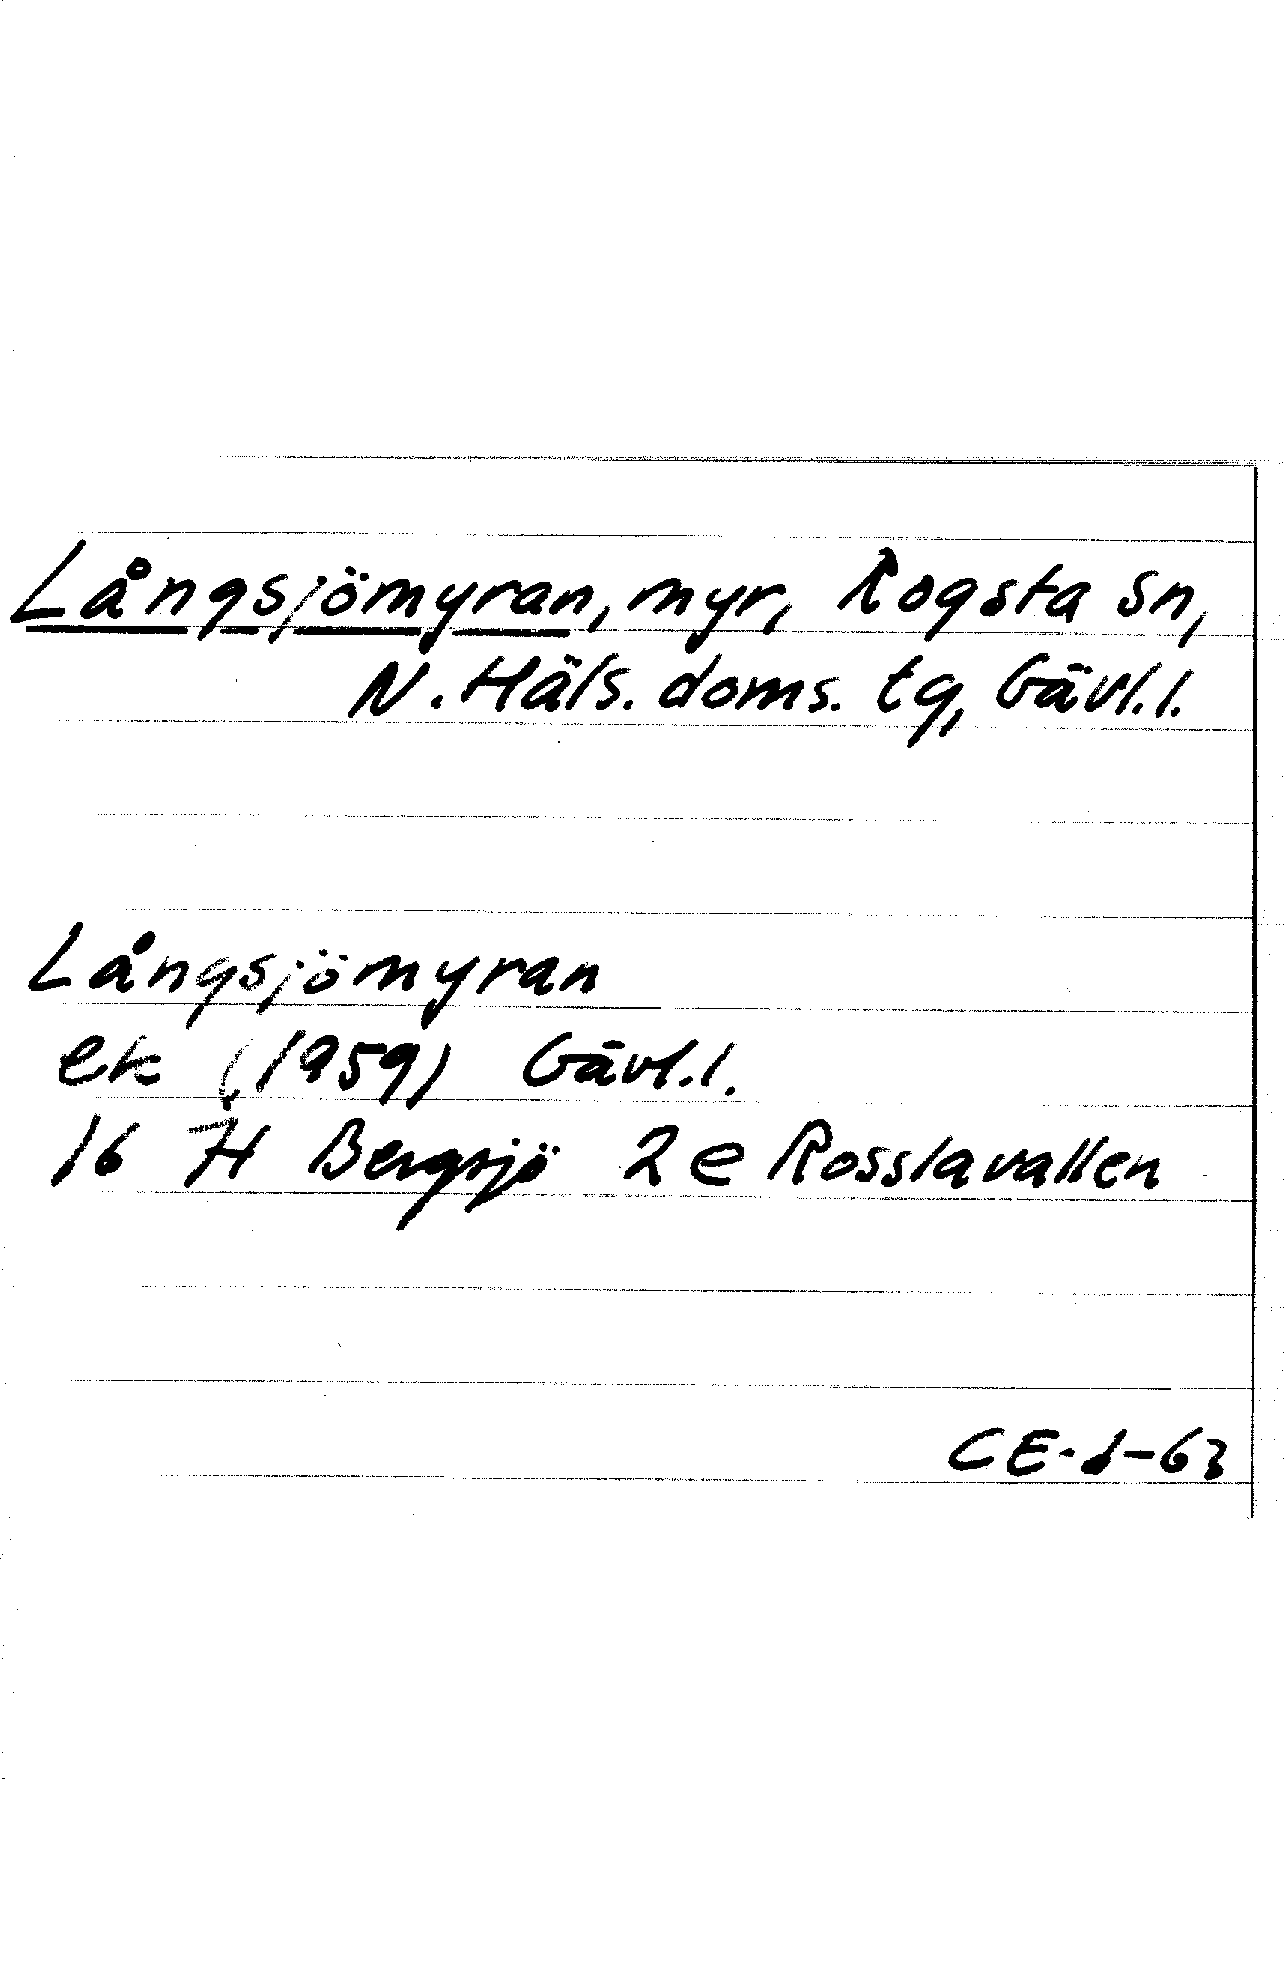 Långsjömyran, myr, Rogsta sn,
N. Häls. doms. tg, Gävl.l.
Långsjömyran
ek (1959) Gävl.l.
16 H Bergsjö 2e Rosslavallen
CE-d-63